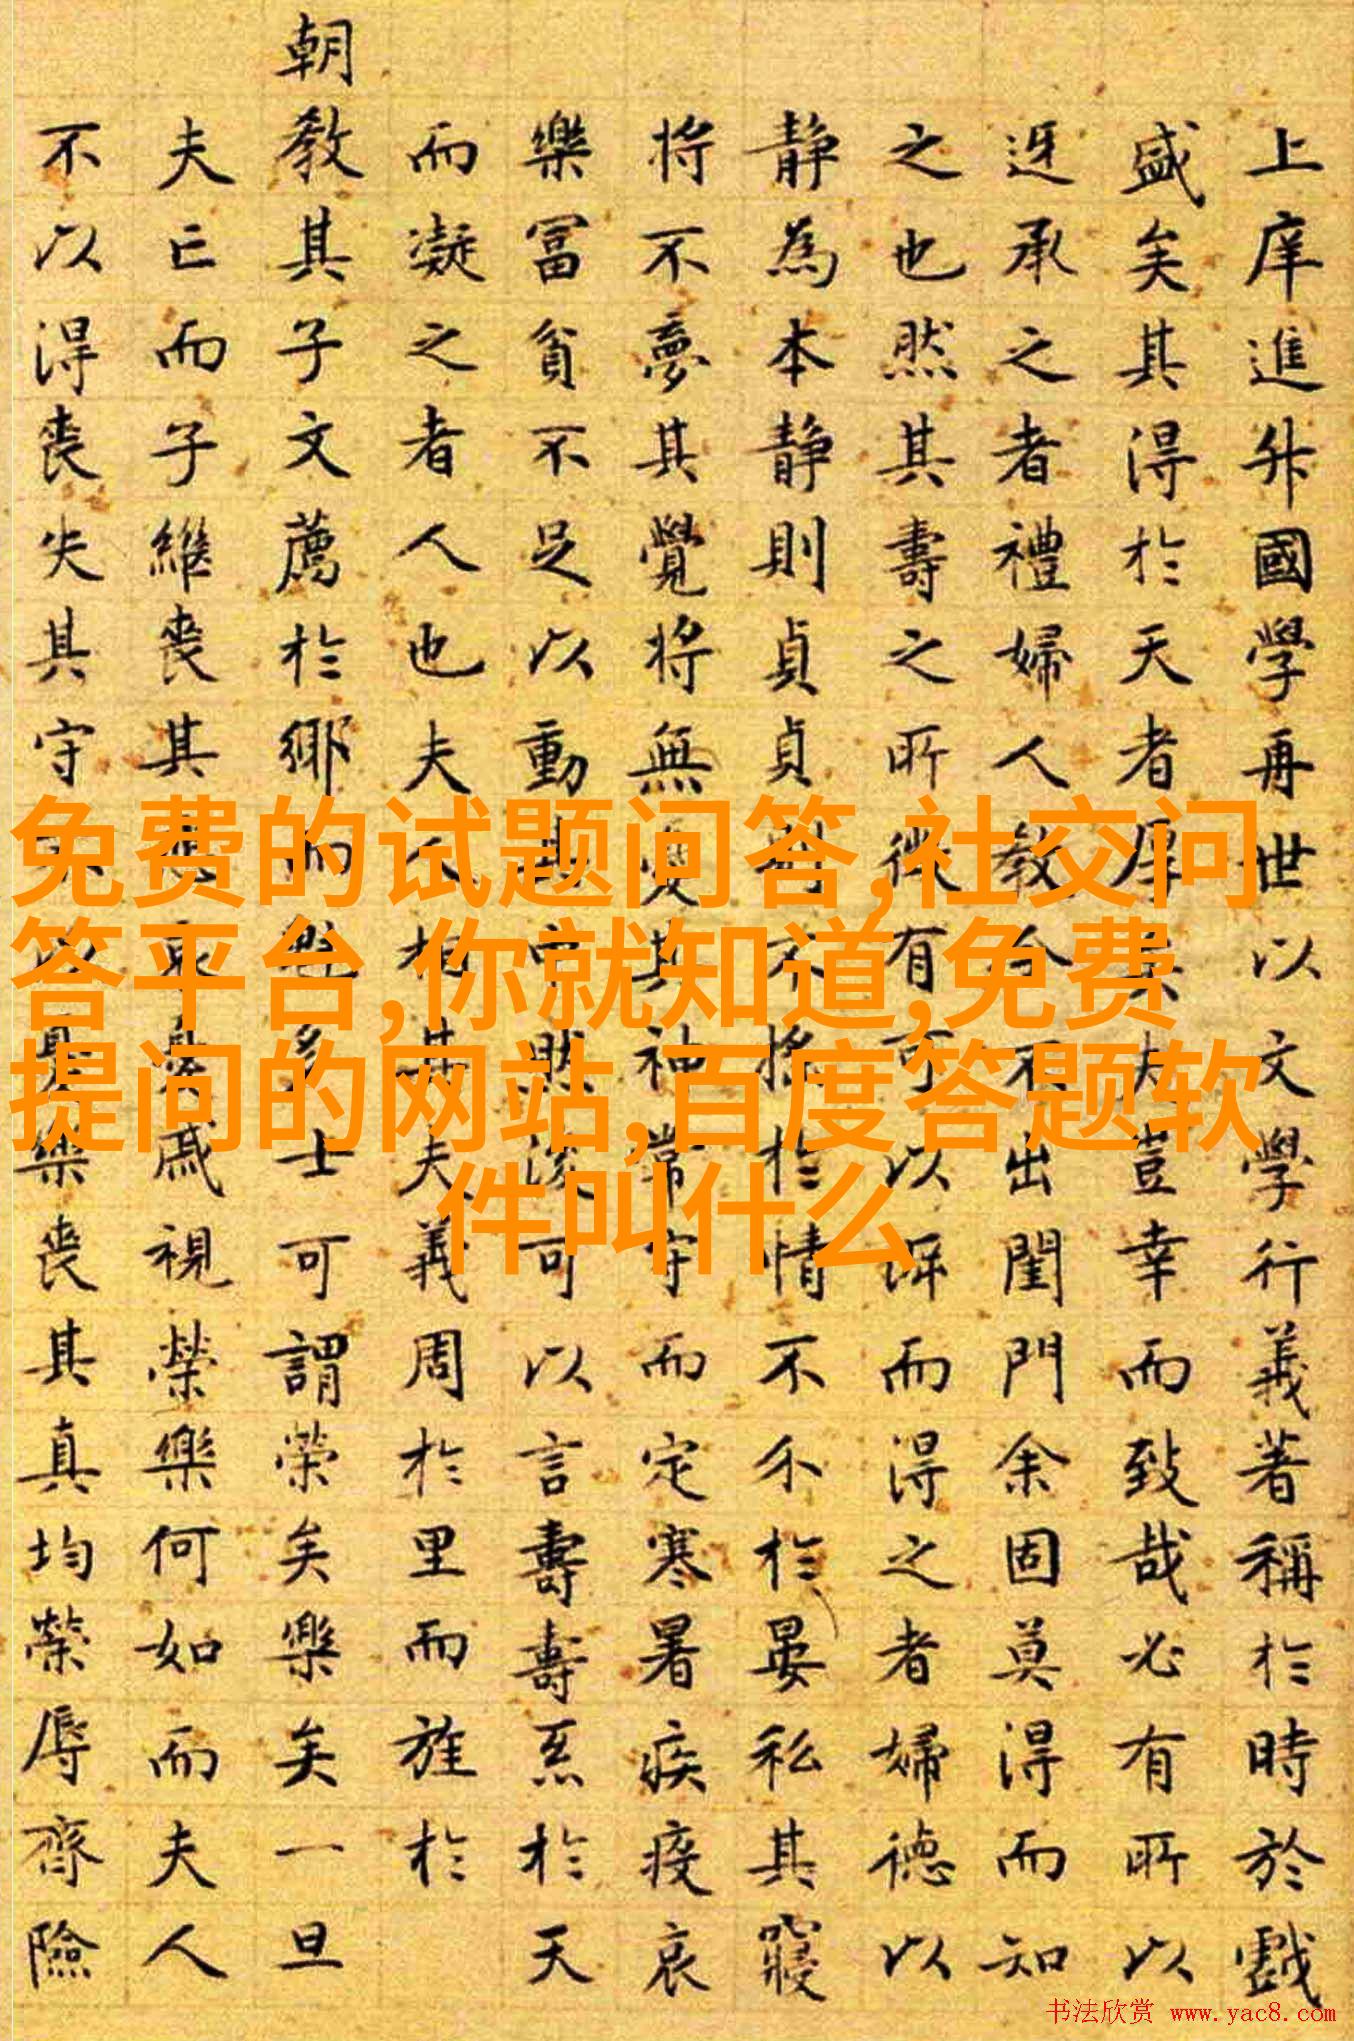 上庠進升國學再世以文學行義著稱於時於戲
盛矣其得於天者厚夫豈幸而致哉必有所以
迓承之者禮婦人教令不出閨門余固莫得而知
之也然其壽之所徵有可以而得之者婦德以
静為本静則貞貞則不搖於情不分於晏私其寢
將不夢其覺將無憂其神常守而定寒暑疾疫哀
樂冨貧不足以動其中然後可以言壽壽系於天
而凝之者人也夫人相其夫義周於里而旌於
朝教其子文薦於鄉而魁多士可謂荣矣樂矣一旦
夫亡而子継喪其哀戚視榮樂何如而夫人
不以得喪失其守不以樂喪其真均榮辱齊險
免费的试题问答,社交问
答平台,你就知道,免费
提问的网站,百度答题软
件叫什么
书法欣赏 www.yac8.com